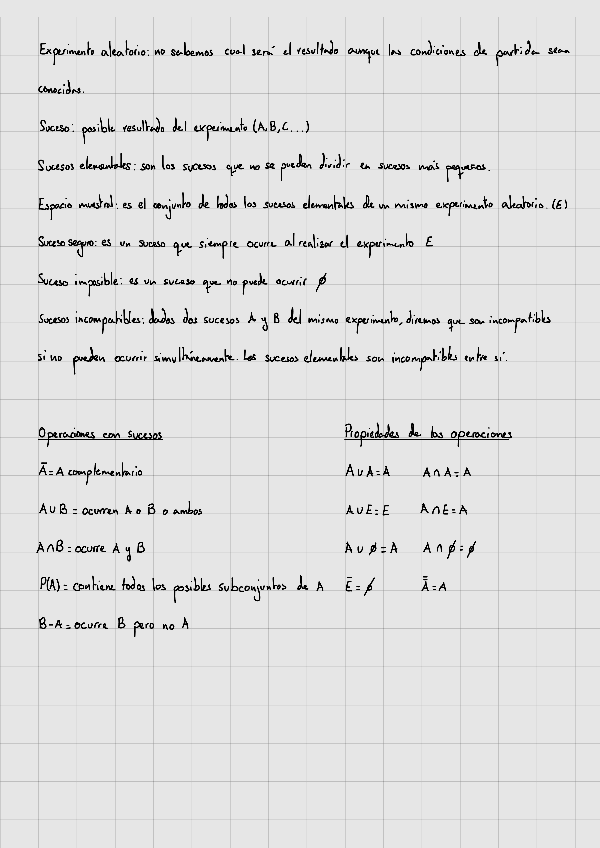 Experimento aleatorio: no sabemos cual será el resultado aunque las condiciones de partida sean
conocidas.
Suceso: posible resultado del experimento (A,B,C...)
Sucesos elementales: son los sucesos que no se pueden dividir en sucesos más pequeños.
Espacio muestral: es el conjunto de todos los sucesos elementales de un mismo experimento aleatorio. (E)
Suceso seguro: es un suceso que siempre ocurre al realizar el experimento E
Suceso imposible: es un suceso que no puede ocurrir ∅
Sucesos incompatibles: dados dos sucesos A y B del mismo experimento, diremos que son incompatibles
si no pueden ocurrir simultáneamente. Los sucesos elementales son incompatibles entre sí.
Operaciones con sucesos
Ā = A complementario
A∪B = ocurren A o B o ambos
A∩B = ocurre A y B
P(A) = contiene todos los posibles subconjuntos de A
B-A = ocurre B pero no A
Propiedades de las operaciones
A∪A=A A∩A=A
A∪E=E A∩E=A
A∪∅=A A∩∅=∅
Ē=∅ A̿=A